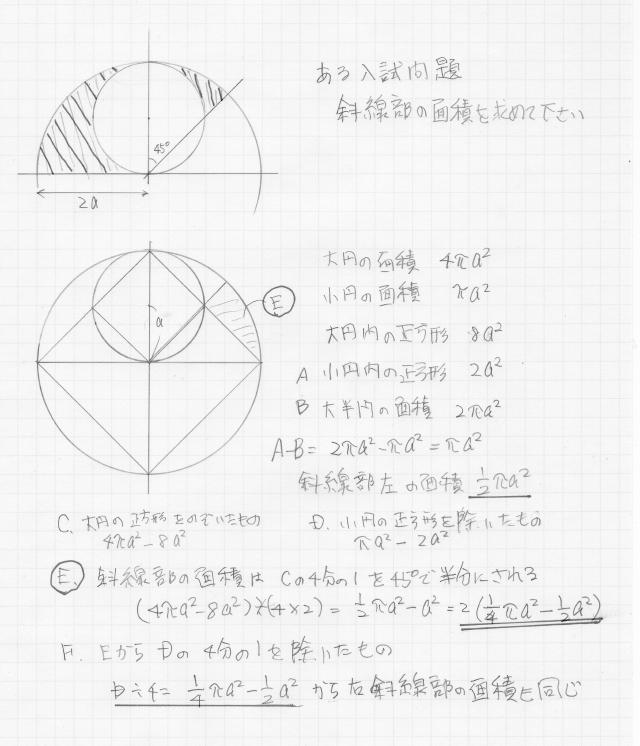 ある入試問題
斜線部の面積を求めて下さい
45°
2a
大円の面積 4πa²
小円の面積 πa²
E
a
大円内の正方形 8a²
A 小円内の正方形 2a²
B 大半円の面積 2πa²
A-B= 2πa²-πa² = πa²
斜線部左の面積 ½πa²
C. 大円の正方形をのぞいたもの
4πa² - 8a²
D. 小円の正方形を除いたもの
πa² - 2a²
E. 斜線部の面積は Cの4分の1を45°で半分にされる
(4πa²-8a²)÷(4×2) = ½πa²-a² = 2(¼πa²-½a²)
F. EからDの4分の1を除いたもの
D÷4= ¼πa²-½a² から右斜線部の面積も同じ